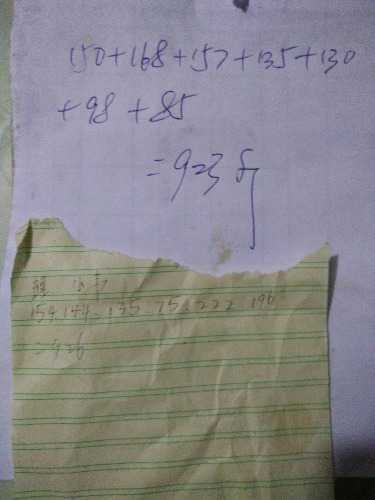 150+168+157+135+130
+98+85
=923斤
154 144 135 75 222 196
=926